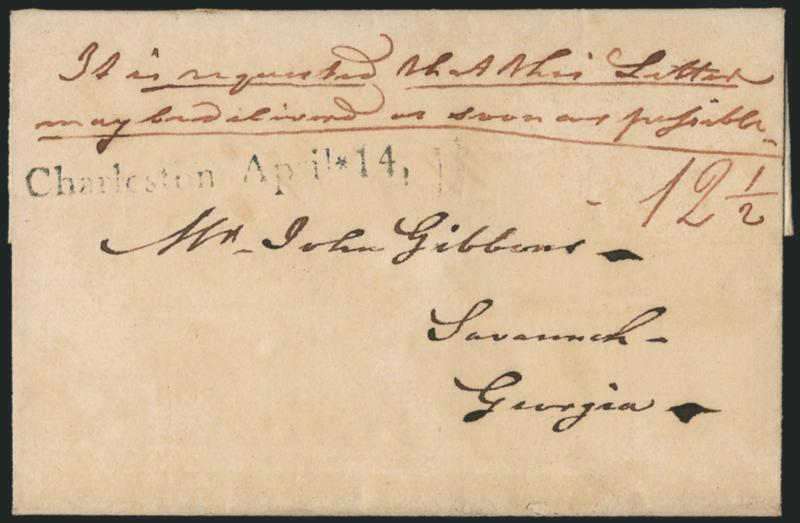 It is requested that this Letter
may be delivered as soon as possible
Charleston April*14,
12 1/2
Mr. John Gibbons
Savannah
Georgia